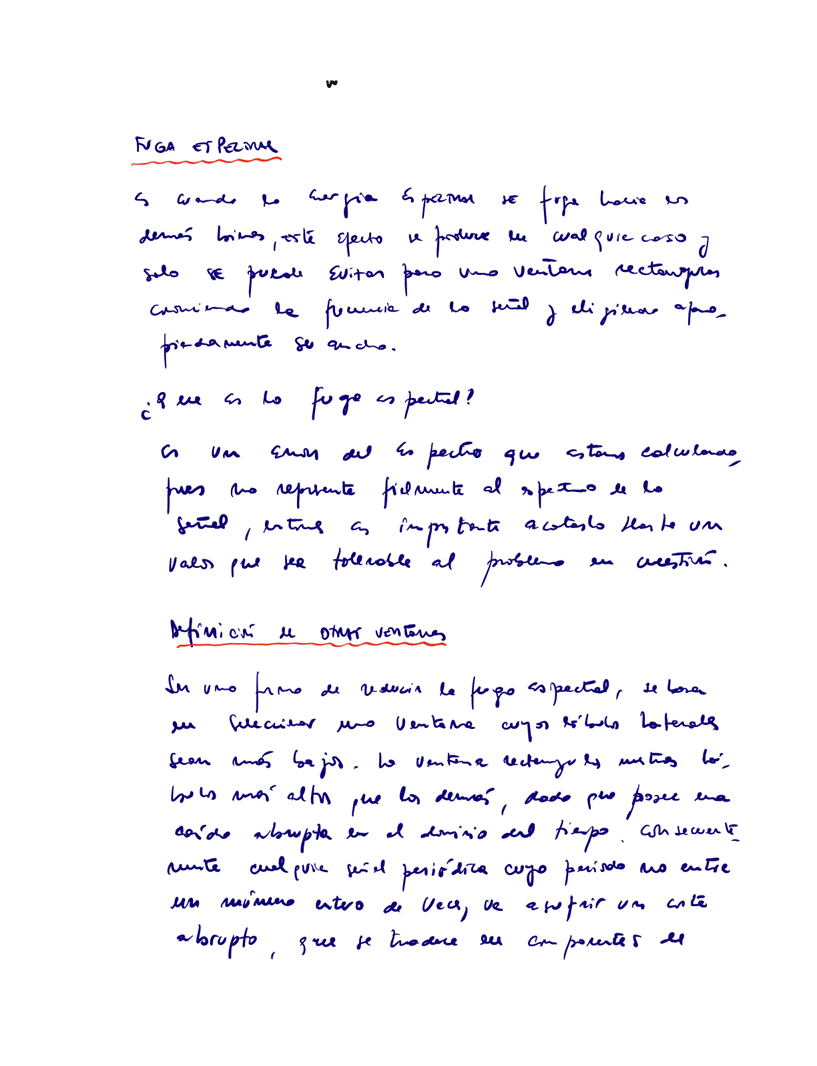 FUGA ESPECTRAL
es cuando la energía espectral se fuga hacia los
demás bines, este efecto se produce en cualquier caso y
solo se puede evitar para una ventana rectangular
conociendo la frecuencia de la señal y eligiendo apro-
piadamente su ancho.
¿Que es la fuga espectral?
es un error del espectro que estamos calculando,
pues no representa fielmente al espectro de la
señal, entonces es importante acotarlo hasta un
valor que sea tolerable al problema en cuestión.
Definición de otras ventanas
una forma de reducir la fuga espectral, se basa
en seleccionar una ventana cuyos lóbulos laterales
sean más bajos. La ventana rectangular muestra ló-
bulos más altos que los demás, dado que posee una
caída abrupta en el dominio del tiempo. Consecuente
mente cualquier señal periódica cuyo periodo no entre
un número entero de veces, va a sufrir un corte
abrupto, que se traduce en componentes de